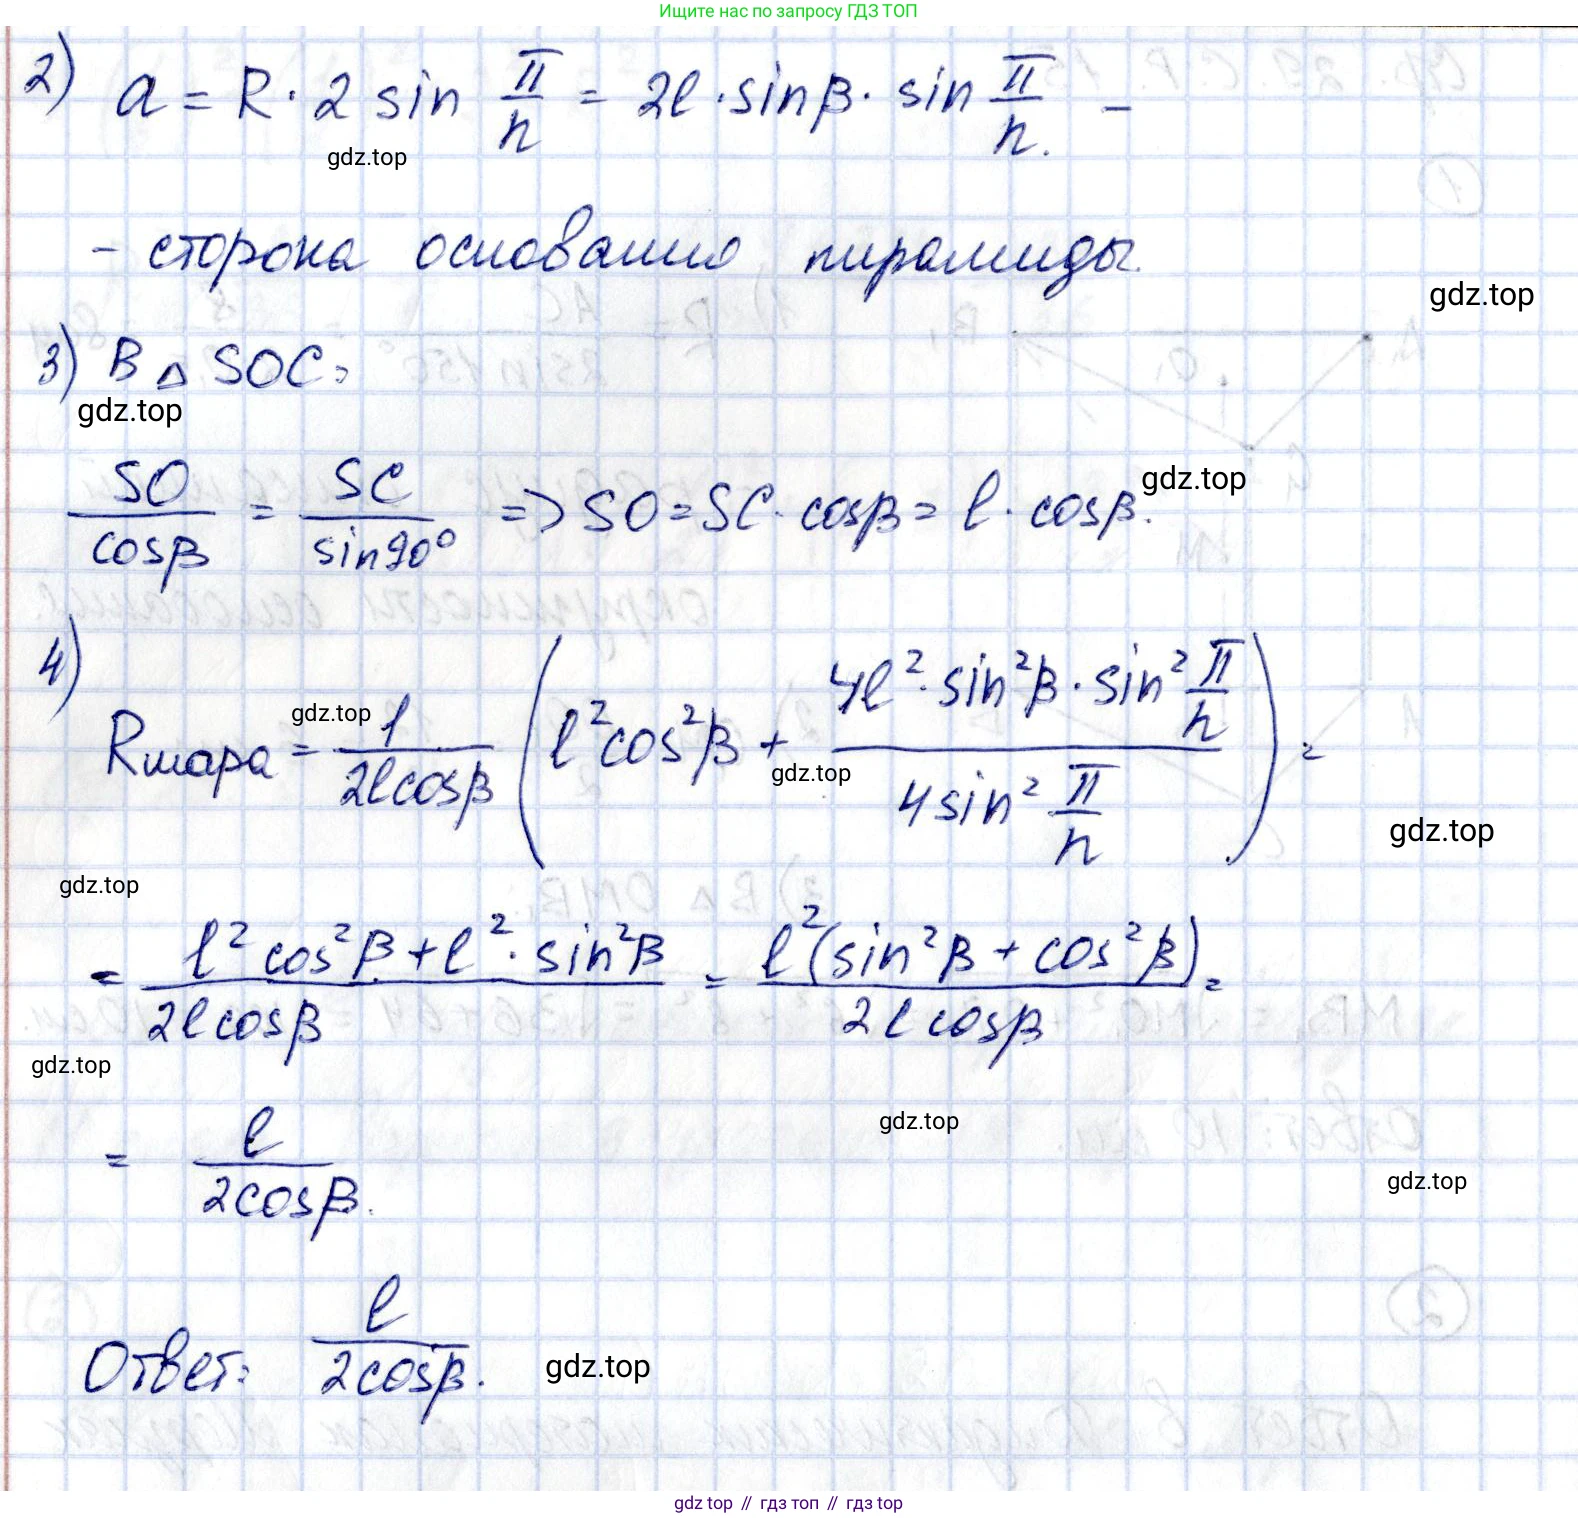 Ищите нас по запросу ГДЗ ТОП
2) a = R · 2 sin π/n = 2l · sinβ · sin π/n. –
gdz.top
– сторона основания пирамиды.
gdz.top
3) В △ SOC:
gdz.top
SO/cosβ = SC/sin90° => SO = SC · cosβ = l · cosβ.
gdz.top
4) Rшара = 1/(2lcosβ) (l²cos²β + (4l² · sin²β · sin² π/n)/(4sin² π/n)) =
gdz.top
gdz.top
gdz.top
gdz.top
= (l² cos²β + l² · sin²β)/(2lcosβ) = l²(sin²β + cos²β)/(2lcosβ) =
gdz.top
gdz.top
= l/(2cosβ).
gdz.top
Ответ: l/(2cosβ).
gdz.top
gdz.top // гдз топ // гдз top